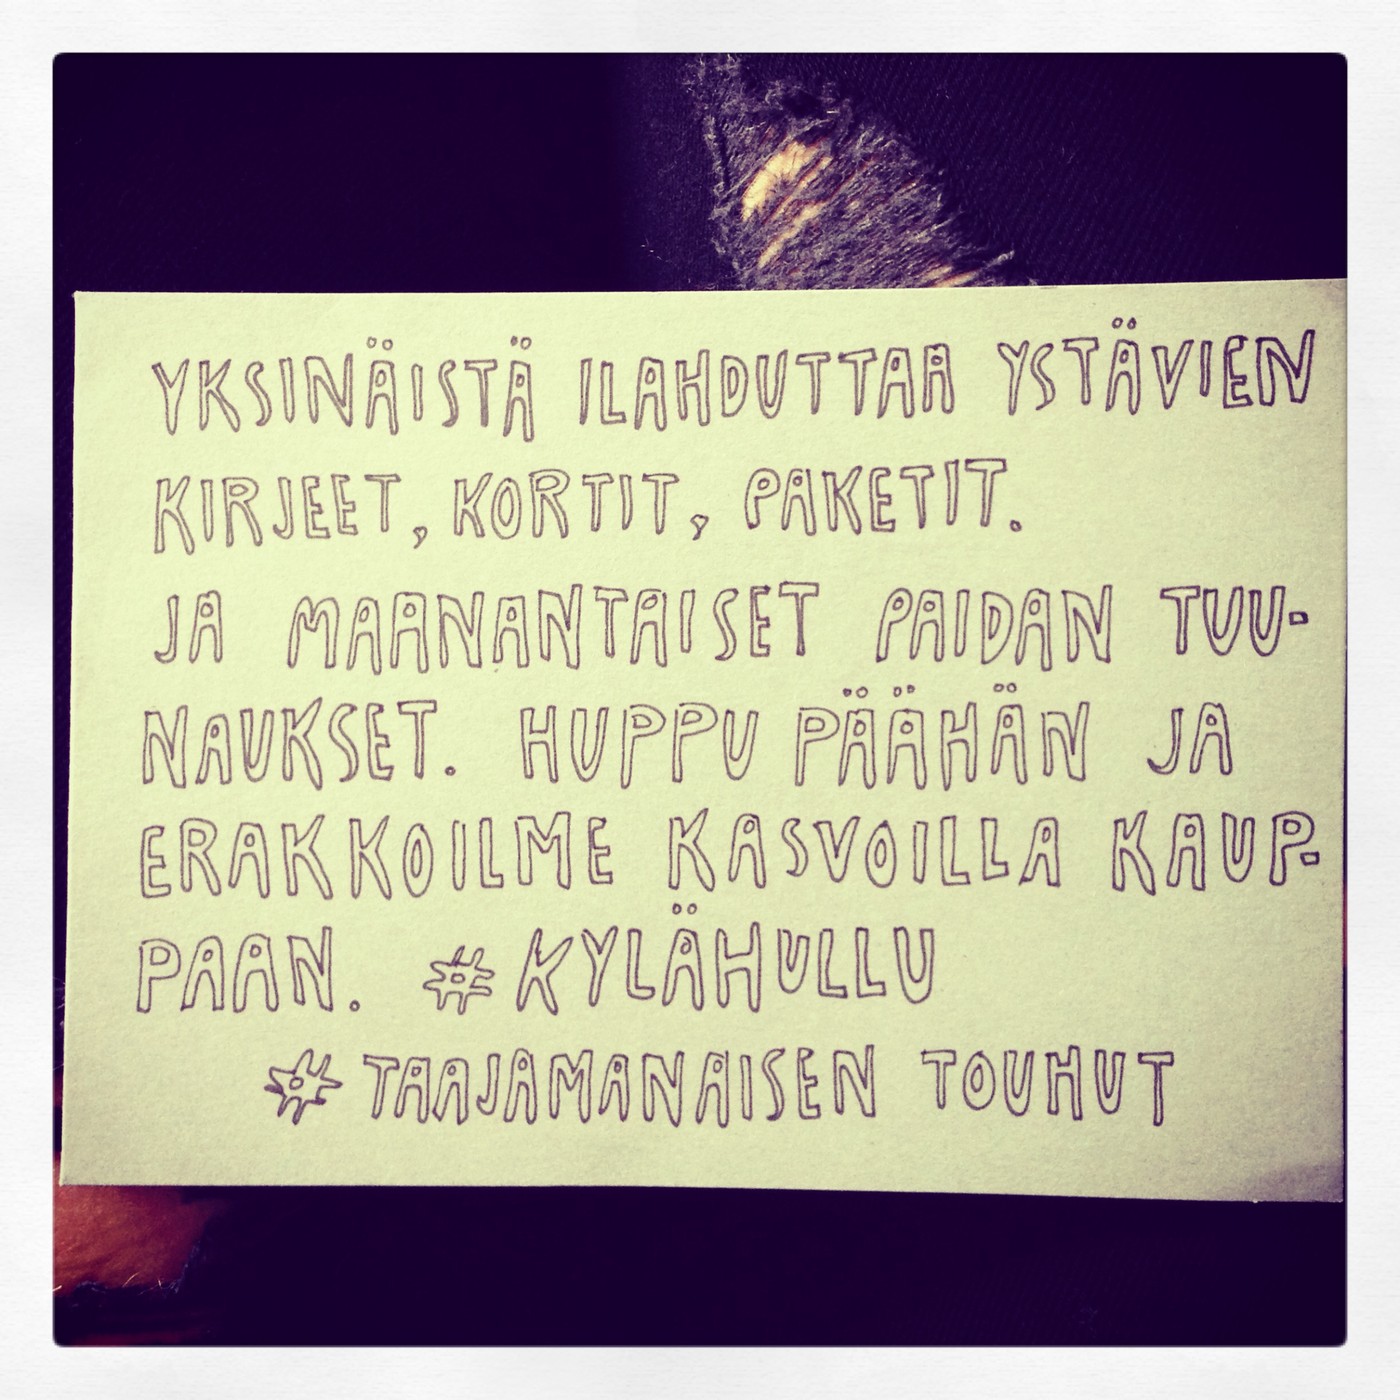 YKSINÄISTÄ ILAHDUTTAA YSTÄVIEN
KIRJEET, KORTIT, PAKETIT.
JA MAANANTAISET PAIDAN TUU-
NAUKSET. HUPPU PÄÄHÄN JA
ERAKKOILME KASVOILLA KAUP-
PAAN. #KYLÄHULLU
#TAAJAMANAISEN TOUHUT